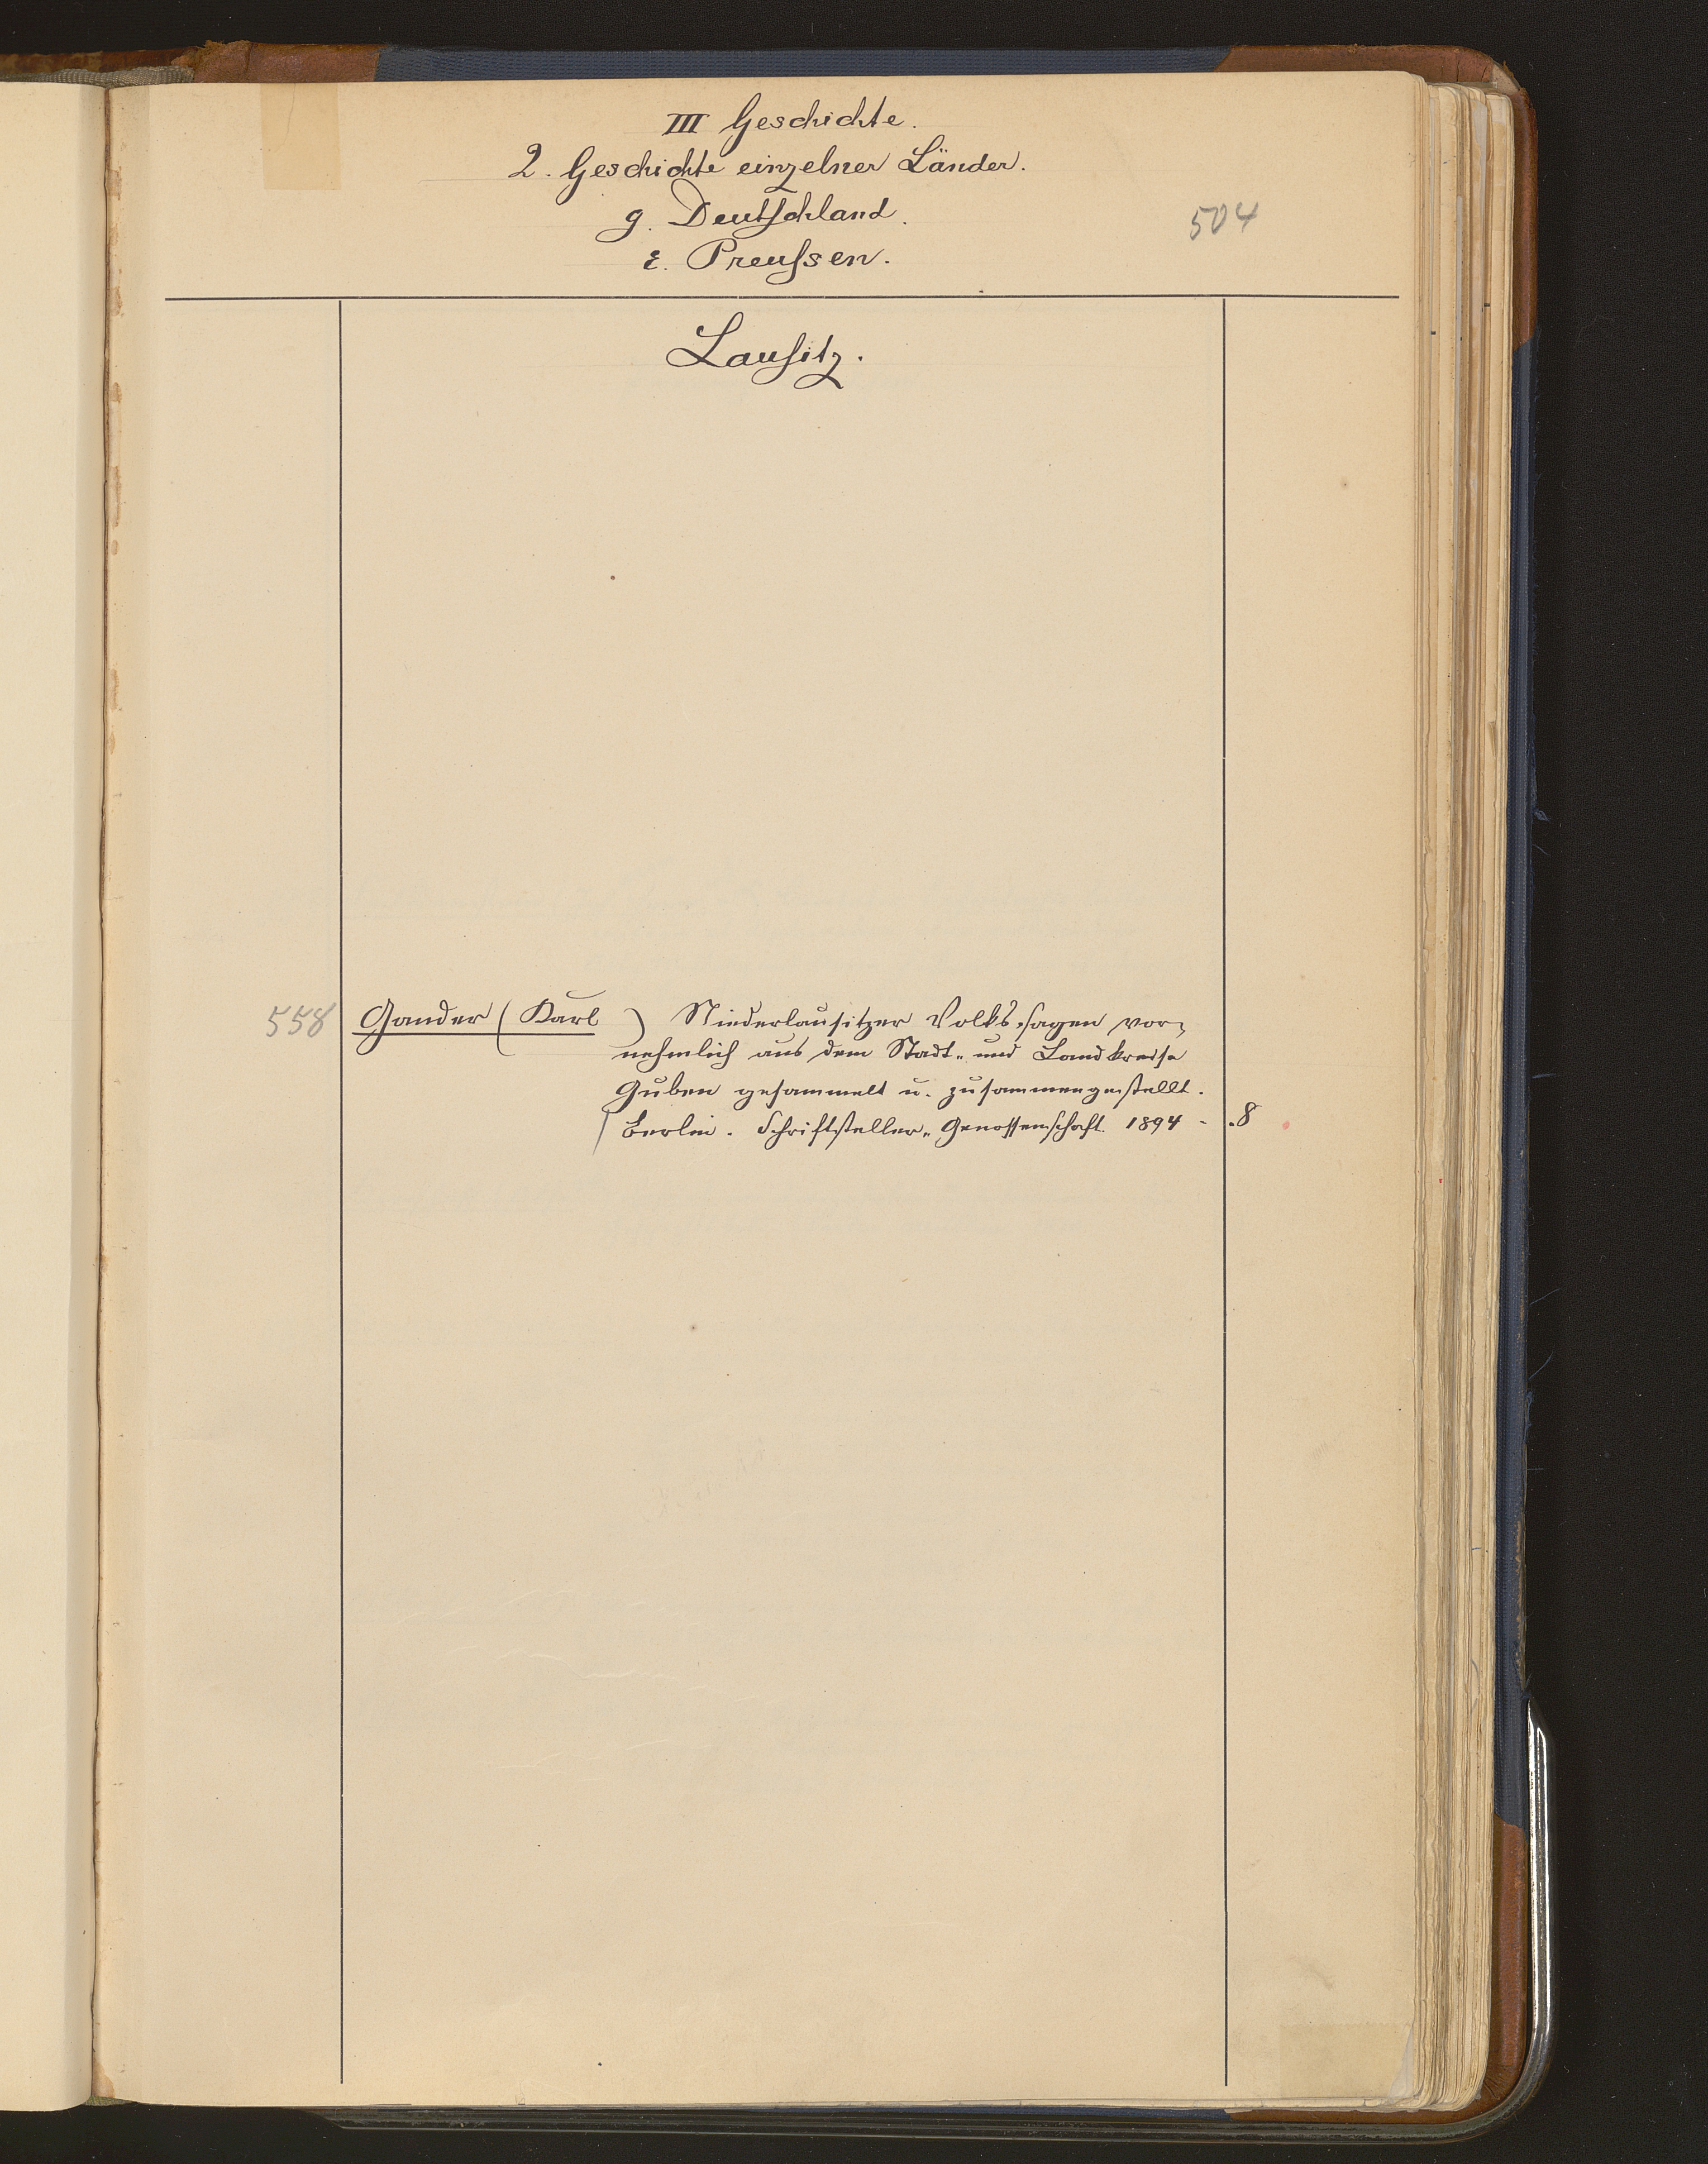 III Geschichte.
2. Geschichte einzelner Länder.
g. Deutschland.
504
ε. Preussen.
Lausitz.
558 Gander (Karl ) Niederlausitzer Volkssagen vor-
nehmlich aus dem Stadt- und Landkreise
Guben gesammelt u. zusammengestellt.
Berlin. Schriftsteller-Genossenschaft. 1894 - .8